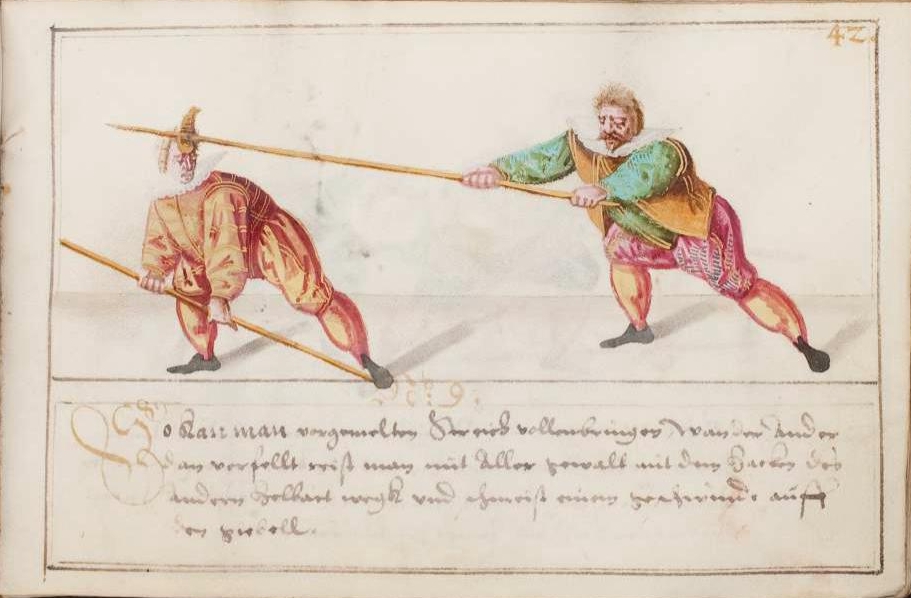 42.
No 9.
So kan man vorgemelten Streich vollenbringen, wan der ander
dan verfellt reist man mit aller gewalt mit dem Hacken des
andern Helbart wegk und schmeist einem geschwinde auff
den